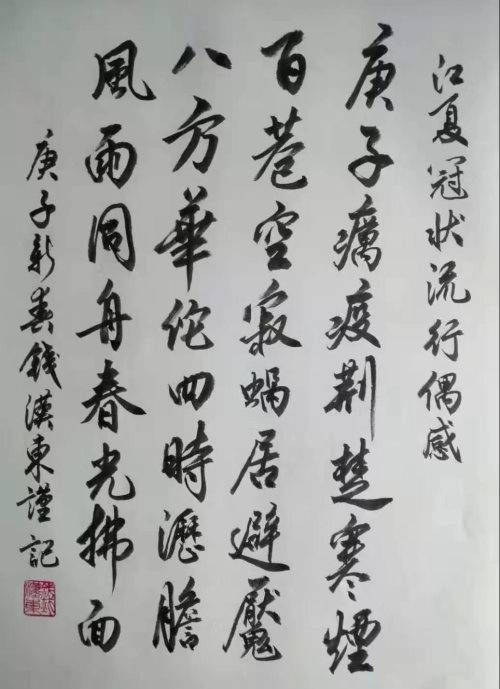 江夏冠状流行偶感
庚子癘疫荆楚寒煙
百巷空寂蝸居避魘
八方華佗四時瀝膽
風雨同舟春光拂面
庚子新春錢漢東謹記